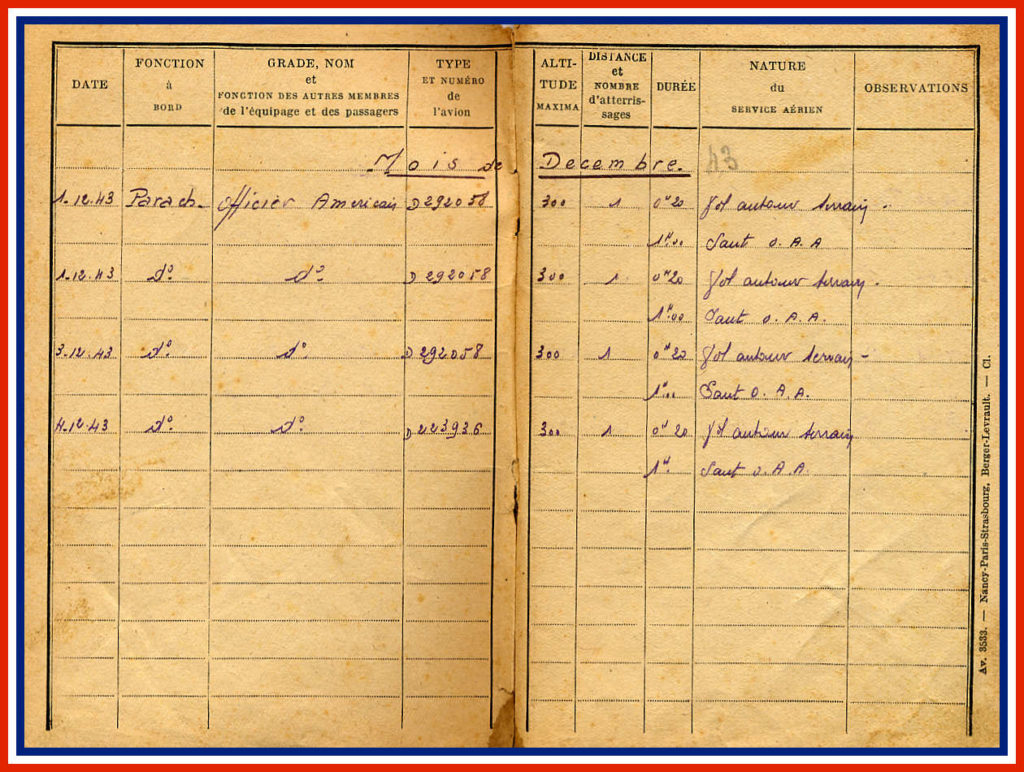 DATE
FONCTION
à
BORD
GRADE, NOM
et
FONCTION DES AUTRES MEMBRES
de l'équipage et des passagers
TYPE
ET NUMÉRO
de
l'avion
ALTI-
TUDE
MAXIMA
DISTANCE
et
NOMBRE
d'atterris-
sages
DURÉE
NATURE
du
SERVICE AÉRIEN
OBSERVATIONS
Mois de Decembre. 43
1.12.43 Parach. Officier Americain D292058 300 1 0ᴴ20 Vol autour terrain
1ᴴ00 Saut O.A.A
1.12.43 dº dº D292058 300 1 0ᴴ20 Vol autour terrain
1ᴴ00 Saut O.A.A.
3.12.43 dº dº D292058 300 1 0ᴴ20 Vol autour terrain
1ᴴ00 Saut O.A.A.
4.12.43 dº dº D223936 300 1 0ᴴ20 Vol autour terrain
1ᴴ Saut O.A.A.
Av. 3533. — Nancy-Paris-Strasbourg, Berger-Levrault. — Cl.